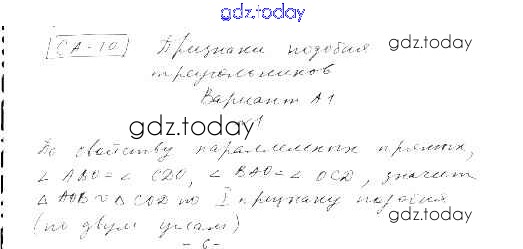 gdz.today
СА-10 Признаки подобия gdz.today
треугольников
Вариант А1
№1
gdz.today
По свойству параллельных прямых,
∠ АВО = ∠ CDO, ∠ ВАО = ∠ OCD, значит
△ АОВ ∾ △ COD по I признаку подобия
(по двум углам) gdz.today
- 6 -